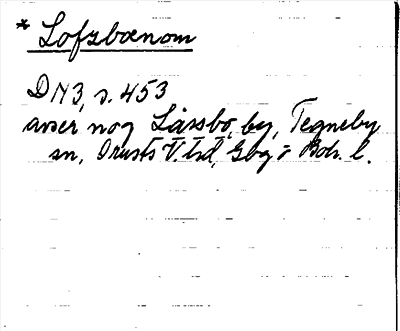 * Lofzbœnom
DN 3, s. 453
avser nog Lässbo, by, Tegneby
sn, Orusts V. hd, Gbg o Boh. l.